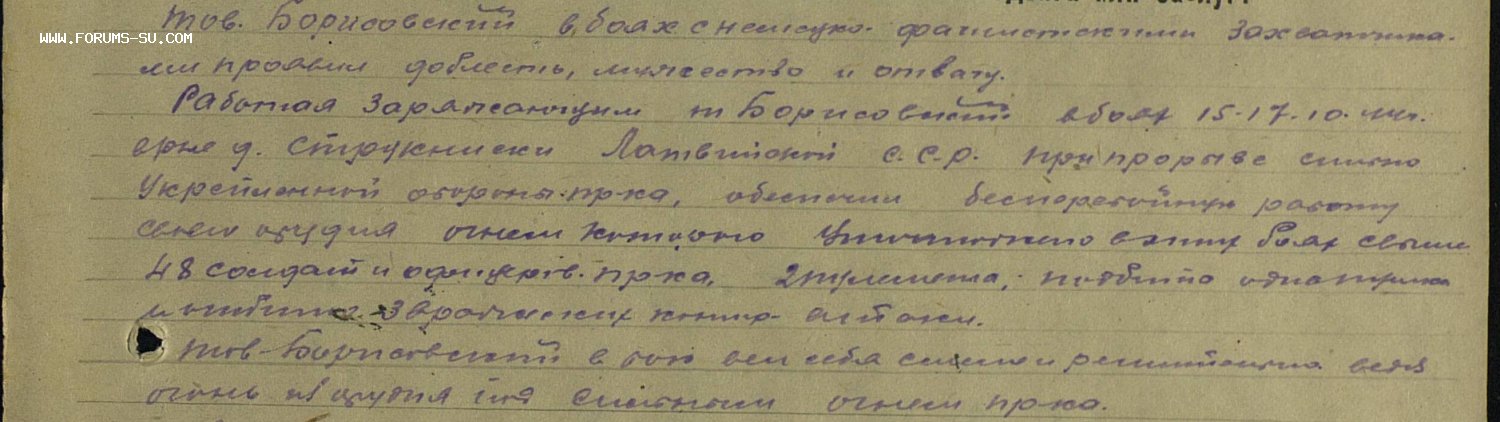 WWW.FORUMS-SU.COM
тов. Борисовский в боях с немецко-фашистскими захватчика-
ми проявил доблесть, мужество и отвагу.
Работая заряжающим т Борисовский в боях 15-17.10.44г.
в р-не д. Струкниски Латвийской с.с.р. при прорыве сильно
укрепленной обороны пр-ка, обеспечил бесперебойную работу
своего орудия огнем которого уничтожено в этих боях свыше
48 солдат и офицеров пр-ка, 2 пулемета, подбито одна пушка
и отбито 3 вражеских контр-атаки.
тов. Борисовский в бою вел себя смело и решительно ведя
огонь из орудия под сильным огнем пр-ка.